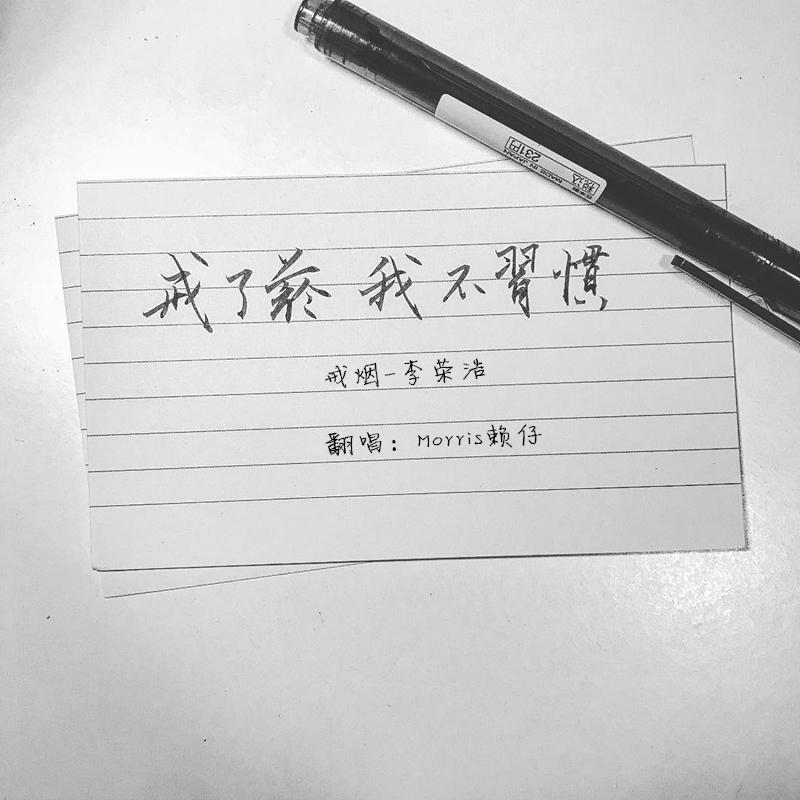 戒了菸 我不習慣
戒烟-李荣浩
翻唱：Morris赖仔
MADE IN JAPAN
231円
税込